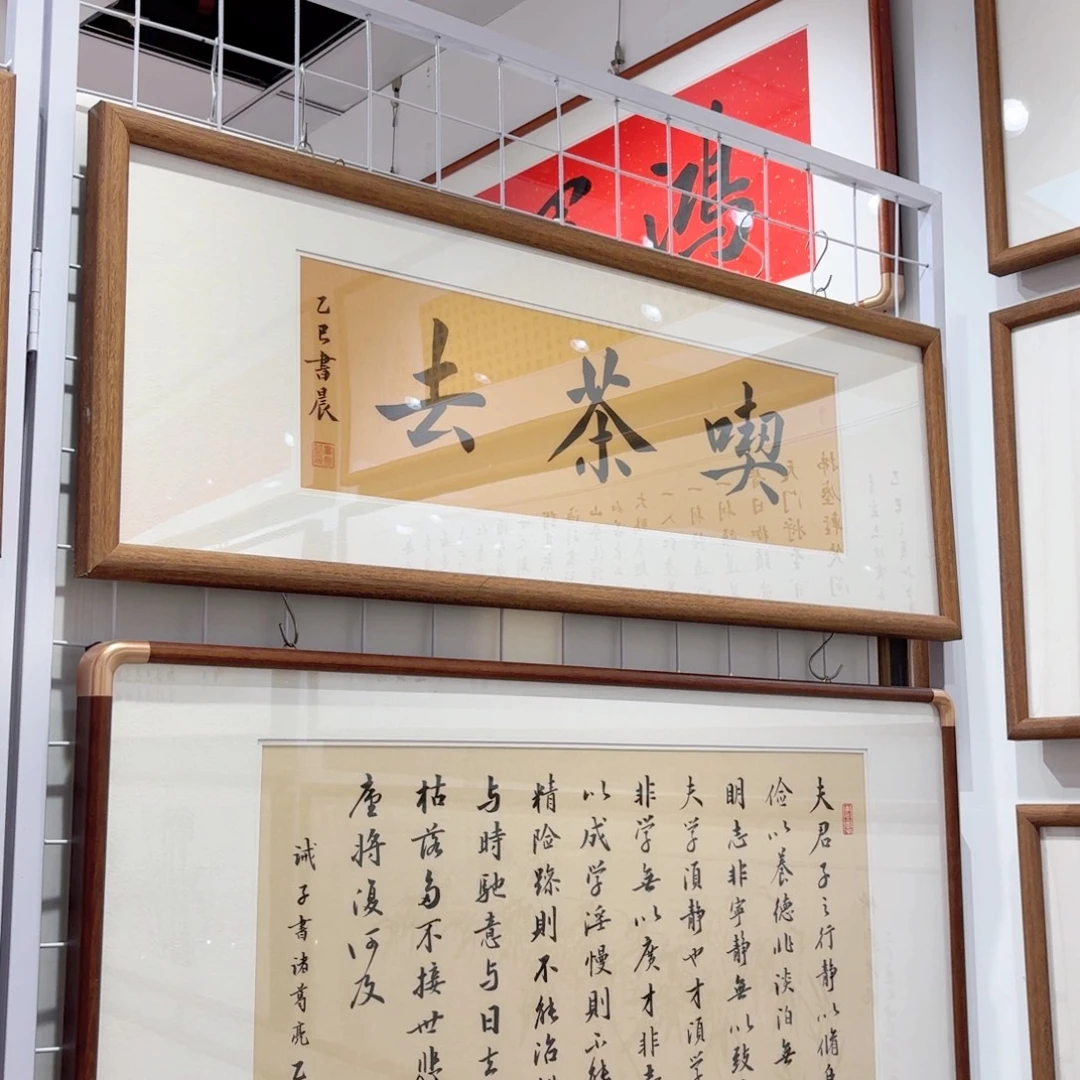 鸿
喫茶去
乙巳書晨
夫君子之行静以脩身
俭以養德非淡泊無
明志非寧静無以致
夫学須静也才須学
非学無以廣才非志
以成学淫慢則不能
精险躁則不能治
与時馳意与日去
枯落多不接世悲
廬將復何及
诫子書诸葛亮乙